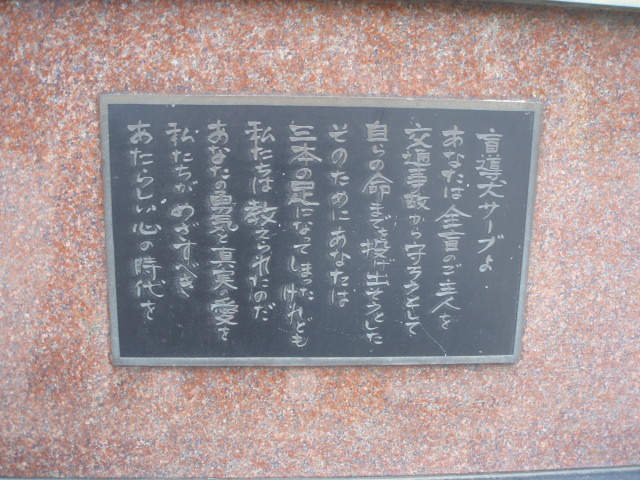 盲導犬サーブよ
あなたは全盲のご主人を
交通事故から守ろうとして
自らの命までも投げ出そうとした
そのためにあなたは
三本の足になってしまったけれども
私たちは教えられたのだ
あなたの勇気と真実の愛を
私たちがめざすべき
あたらしい心の時代を